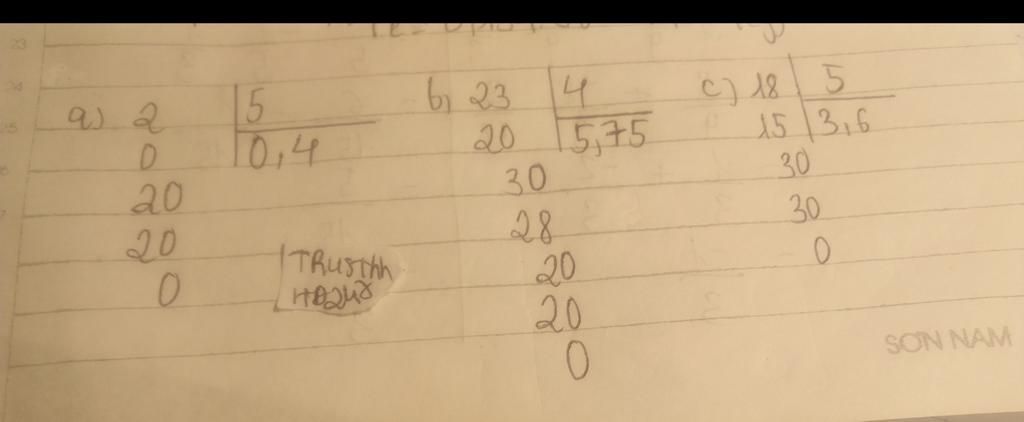 a) 2 | 5
0 | 0,4
20
20
0
b) 23 | 4
20 | 5,75
30
28
20
20
0
c) 18 | 5
15 | 3,6
30
30
0
SON NAM
23